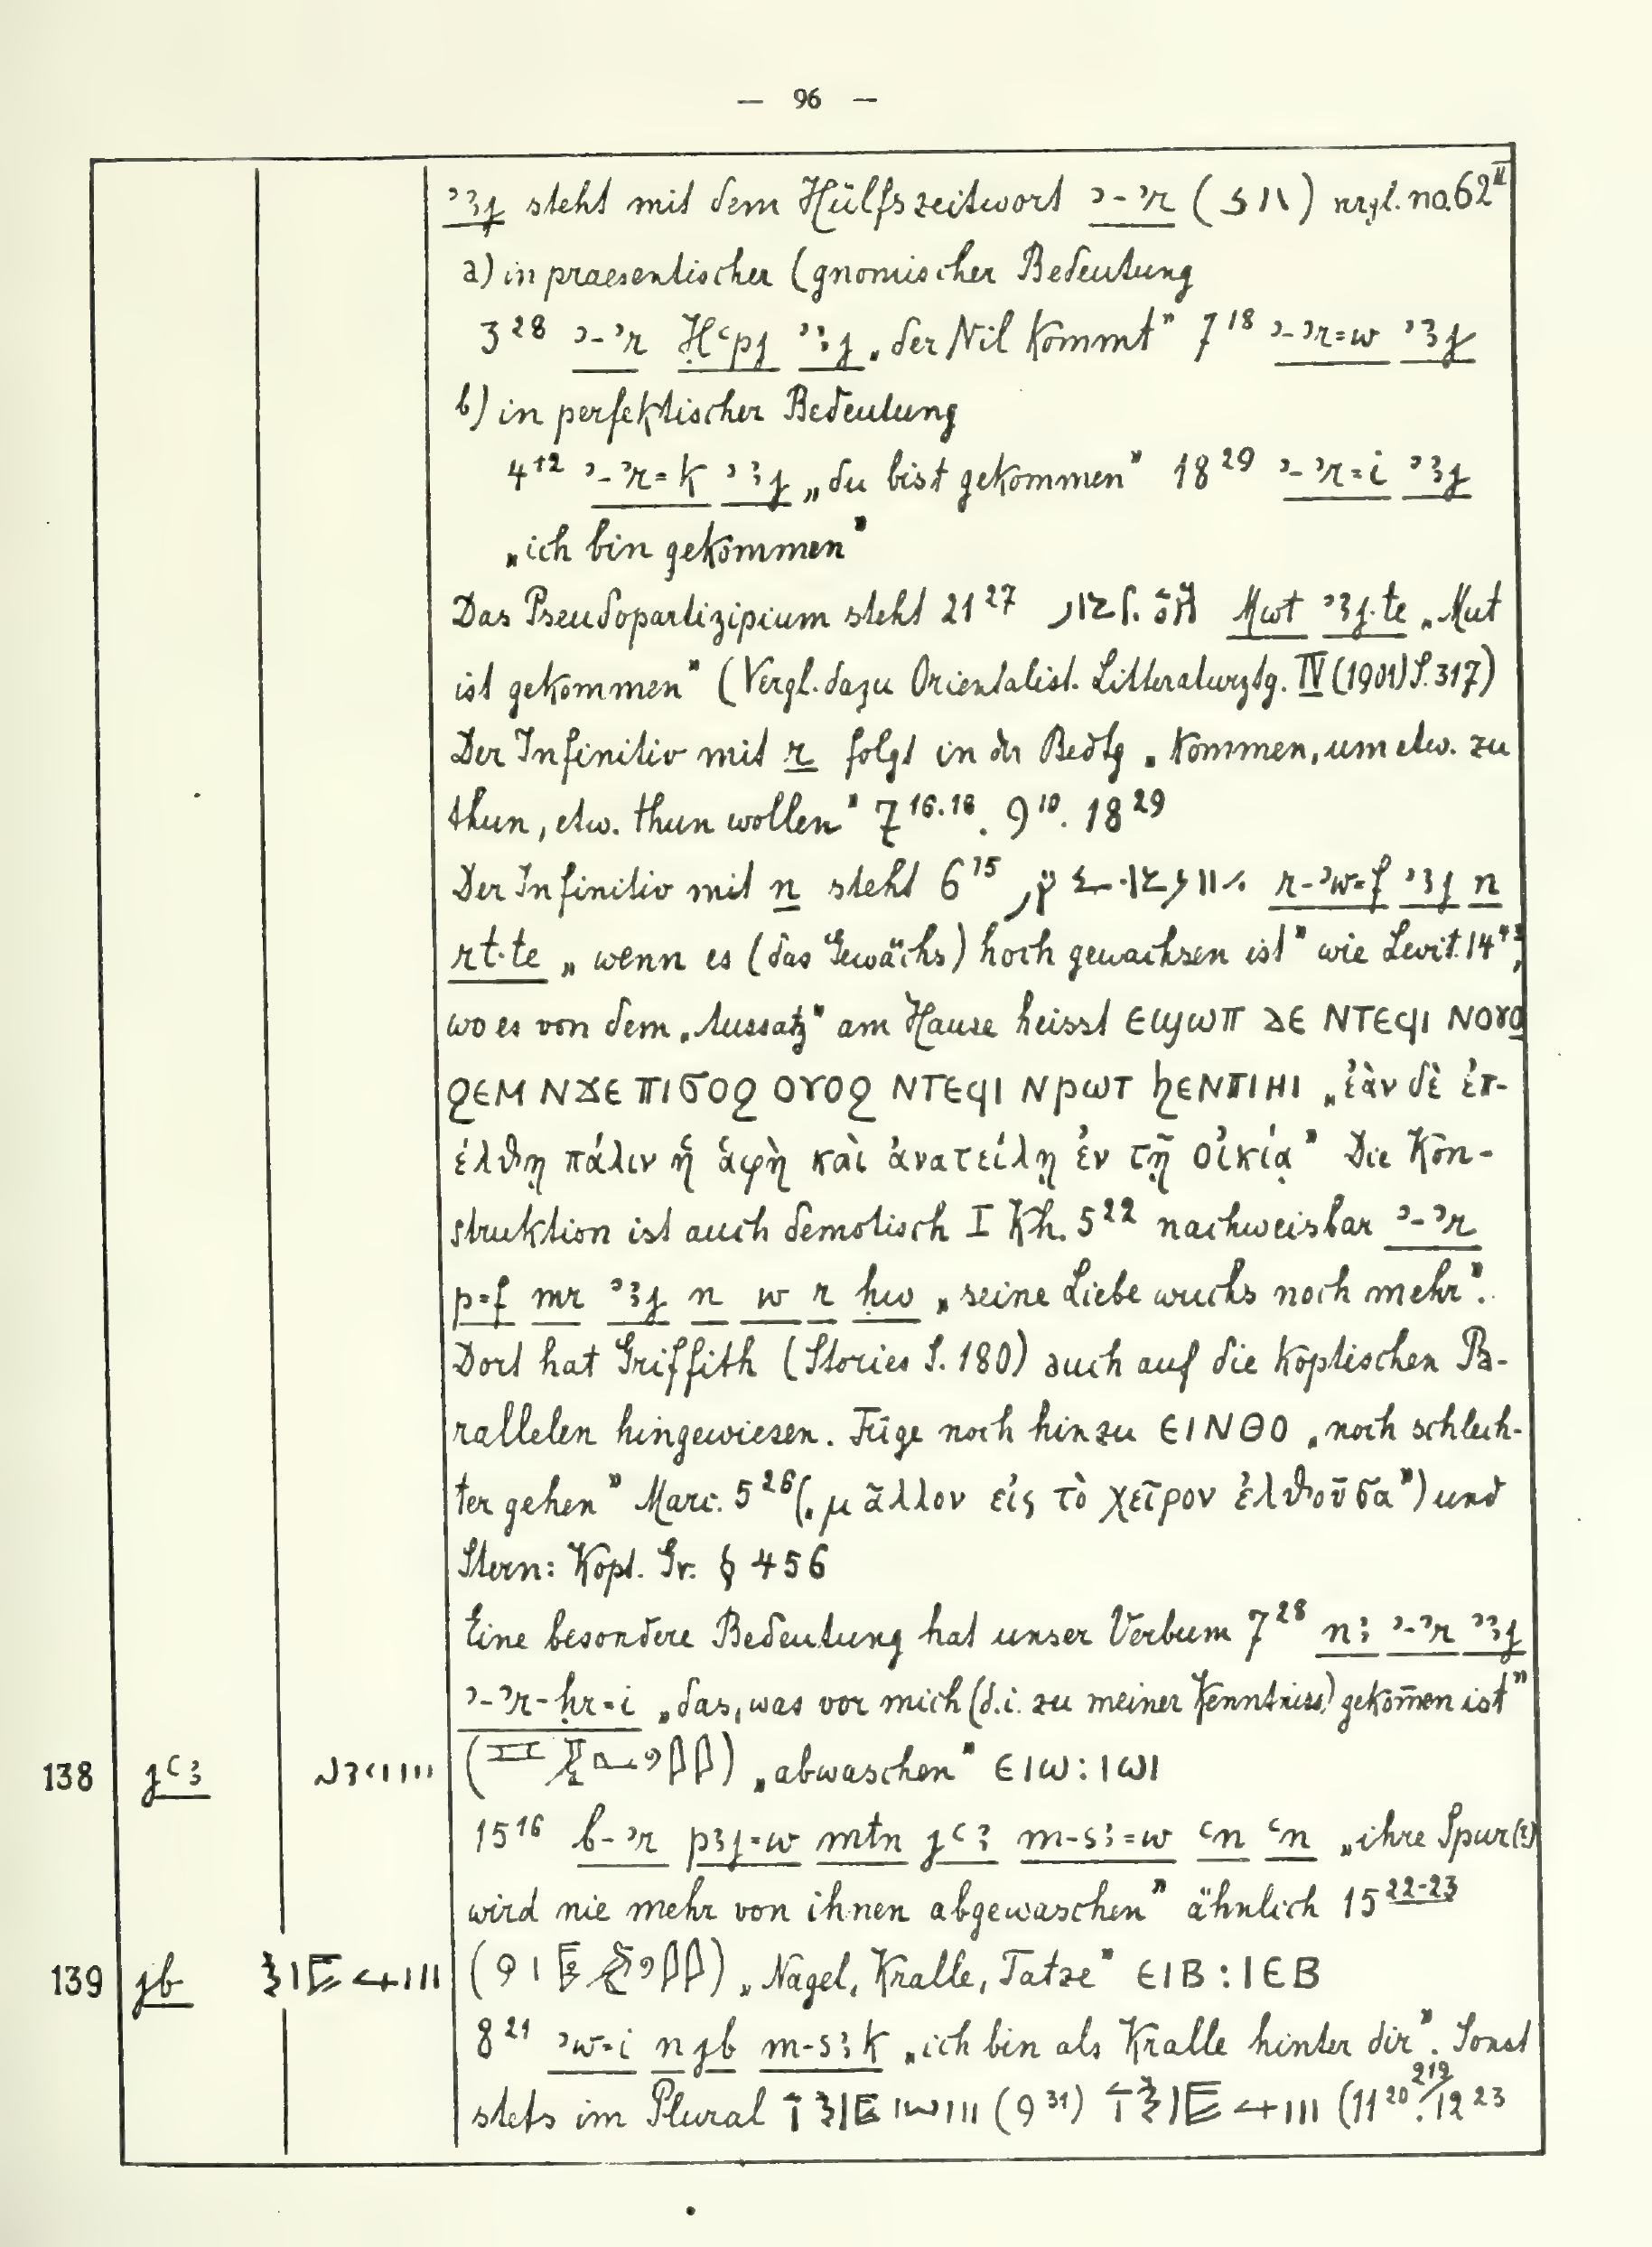 — 96 —
ʾꜣj steht mit dem Hülfszeitwort ʾ-ʾr ( ) vrgl. no. 62 II
a) in praesentischer (gnomischer Bedeutung
3²⁸ ʾ-ʾr Ḥʿpj ʾꜣj „der Nil kommt" 7¹⁸ ʾ-ʾr=w ʾꜣj
b) in perfektischer Bedeutung
4¹² ʾ-ʾr=k ʾꜣj „du bist gekommen" 18²⁹ ʾ-ʾr=i ʾꜣj
„ich bin gekommen"
Das Pseudopartizipium steht 21²⁷ Mwt ʾꜣj·te „Mut
ist gekommen" (Vergl. dazu Orientalist. Litteraturztg. IV (1901) S. 317)
Der Infinitiv mit r folgt in der Bedtg „kommen, um etw. zu
thun, etw. thun wollen" 7¹⁶·¹⁸. 9¹⁰. 18²⁹
Der Infinitiv mit n steht 6¹⁵ r-ʾw=f ʾꜣj n
rt·te „wenn es (das Gewächs) hoch gewachsen ist" wie Levit. 14⁴³,
wo es von dem „Aussatz" am Hause heisst ⲉϣⲱⲡ ⲇⲉ ⲛⲧⲉϥⲓ ⲛⲟⲩⲟ
ϩⲉⲙ ⲛϫⲉ ⲡⲓϭⲟϩ ⲟⲩⲟϩ ⲛⲧⲉϥⲓ ⲛⲣⲱⲧ ϧⲉⲛⲡⲓⲏⲓ „ἐὰν δὲ ἐπ-
έλθῃ πάλιν ἡ ἁφὴ καὶ ἀνατείλῃ ἐν τῇ οἰκίᾳ" Die Kon-
struktion ist auch demotisch I Kh. 5²² nachweisbar ʾ-ʾr
p=f mr ʾꜣj n w r ḥw „seine Liebe wuchs noch mehr".
Dort hat Griffith (Stories S. 180) auch auf die koptischen Pa-
rallelen hingewiesen. Füge noch hinzu ⲉⲓⲛⲑⲟ „noch schlech-
ter gehen" Marc. 5²⁶ („μᾶλλον εἰς τὸ χεῖρον ἐλθοῦσα") und
Stern: Kopt. Gr. § 456
Eine besondere Bedeutung hat unser Verbum 7²⁸ nꜣ ʾ-ʾr ʾꜣj
ʾ-ʾr-ḥr=i „das, was vor mich (d.i. zu meiner Kenntniss) gekom̄en ist"
138 jʿꜣ ( ) „abwaschen" ⲉⲓⲱ : ⲓⲱⲓ
15¹⁶ b-ʾr pꜣj=w mtn jʿꜣ m-sꜣ=w ʿn ʿn „ihre Spur(?)
wird nie mehr von ihnen abgewaschen" ähnlich 15²²⁻²³
139 jb ( ) „Nagel, Kralle, Tatze" ⲉⲓⲃ : ⲓⲉⲃ
8²¹ ʾw=i n jb m-sꜣ k „ich bin als Kralle hinter dir". Sonst
stets im Plural (9³¹) (11²⁰. 12²³